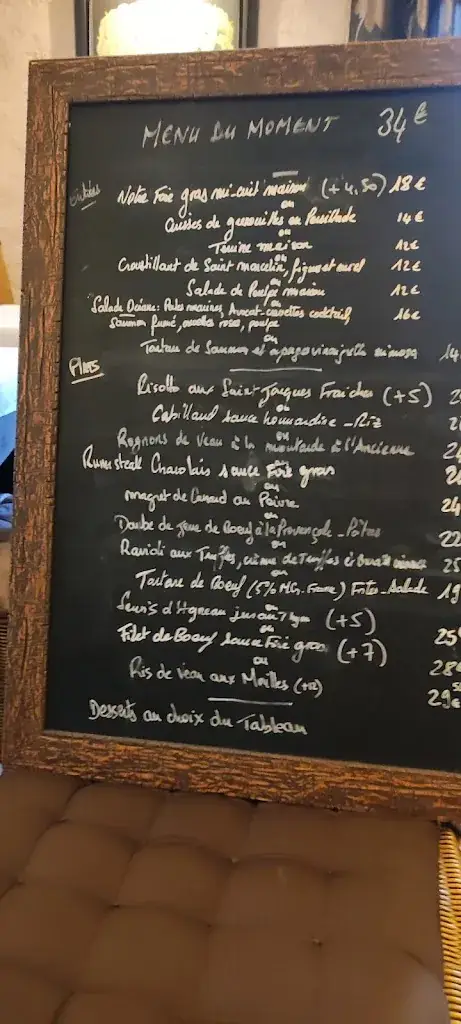 MENU DU MOMENT 34€
Entrées
Notre Foie gras mi-cuit maison (+4,50) 18€
ou
Cuisses de grenouilles en Persillade 14€
ou
Terrine maison 12€
ou
Croustillant de Saint marcelin, figues et miel 12€
ou
Salade de Poulpe maison 12€
ou
Salade Océane: Pates marines, Avocat-crevettes cocktail, 16€
Saumon fumé, crevettes roses, poulpe
ou
Tartare de Saumon et asperges vinaigrette mimosa 14
Plats
Risotto aux Saint Jacques Fraiches (+5) 2
ou
Cabillaud sauce homardise - Riz 2
ou
Rognons de Veau à la moutarde à l'Ancienne 24
Rumsteak Charolais sauce Foie gras 2
ou
magret de Canard au Poivre 24
ou
Daube de joue de Boeuf à la Provençale - Pâtes 22
ou
Ravioli aux Truffes, crème de Truffes & 25
ou
Tartare de Boeuf (5% MG, France) Frites - Salade 19
Souris d'Agneau jus au Thym (+5)
ou
Filet de Boeuf sauce Foie gras (+7) 25
ou
28€
Ris de veau aux Morilles (+12) 29€
Desserts au choix du Tableau